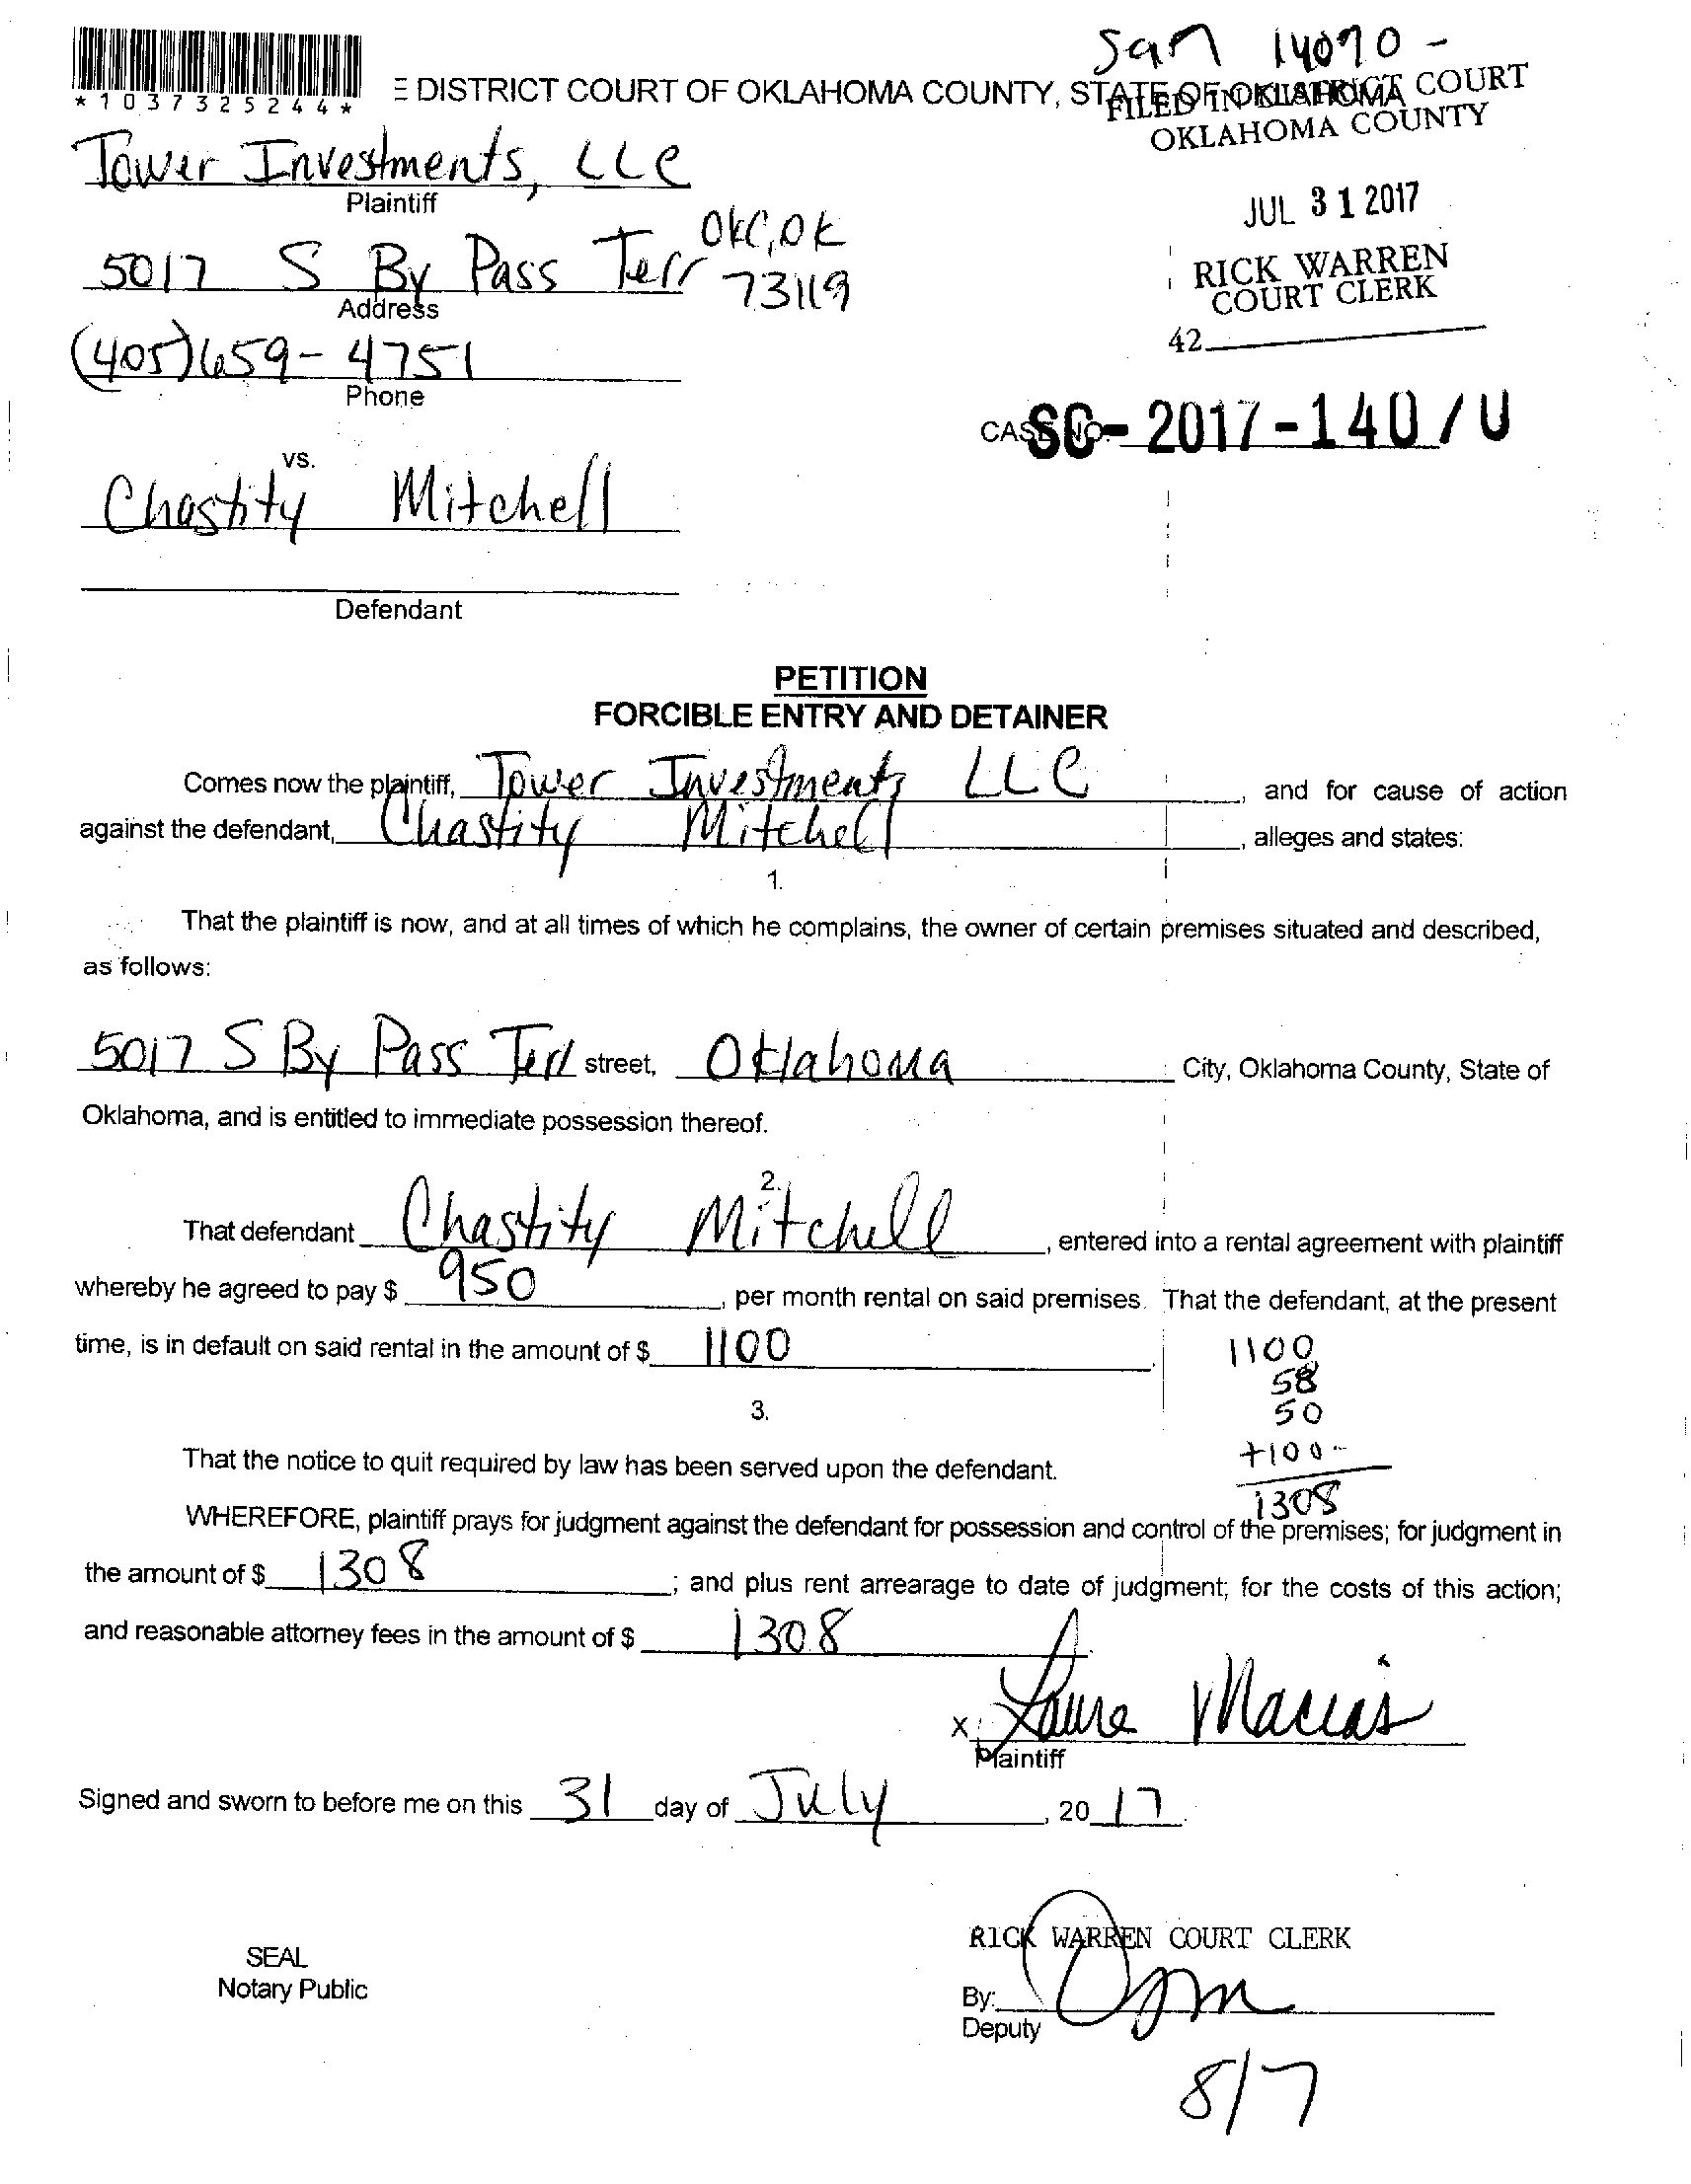 San 14090 -
*1037325244*
E DISTRICT COURT OF OKLAHOMA COUNTY, STATE OF OKLAHOMA
FILED IN DISTRICT COURT
OKLAHOMA COUNTY
JUL 31 2017
RICK WARREN
COURT CLERK
42
Tower Investments, LLC
Plaintiff
5017 S By Pass Terr OKC, OK
73119
Address
(405)659-4751
Phone
CASE NO. SC-2017-140/U
vs.
Chastity Mitchell
Defendant
PETITION
FORCIBLE ENTRY AND DETAINER
Comes now the plaintiff, Tower Investments LLC, and for cause of action
against the defendant, Chastity Mitchell, alleges and states:
1.
That the plaintiff is now, and at all times of which he complains, the owner of certain premises situated and described,
as follows:
5017 S By Pass Terr street, Oklahoma City, Oklahoma County, State of
Oklahoma, and is entitled to immediate possession thereof.
2.
That defendant Chastity Mitchell, entered into a rental agreement with plaintiff
whereby he agreed to pay $ 950, per month rental on said premises. That the defendant, at the present
time, is in default on said rental in the amount of $ 1100
1100
58
50
+100-
1308
3.
That the notice to quit required by law has been served upon the defendant.
WHEREFORE, plaintiff prays for judgment against the defendant for possession and control of the premises; for judgment in
the amount of $ 1308; and plus rent arrearage to date of judgment; for the costs of this action;
and reasonable attorney fees in the amount of $ 1308
x Laura Macias
Plaintiff
Signed and sworn to before me on this 31 day of July, 20 17.
RICK WARREN COURT CLERK
SEAL
Notary Public
By:
Deputy
8/7